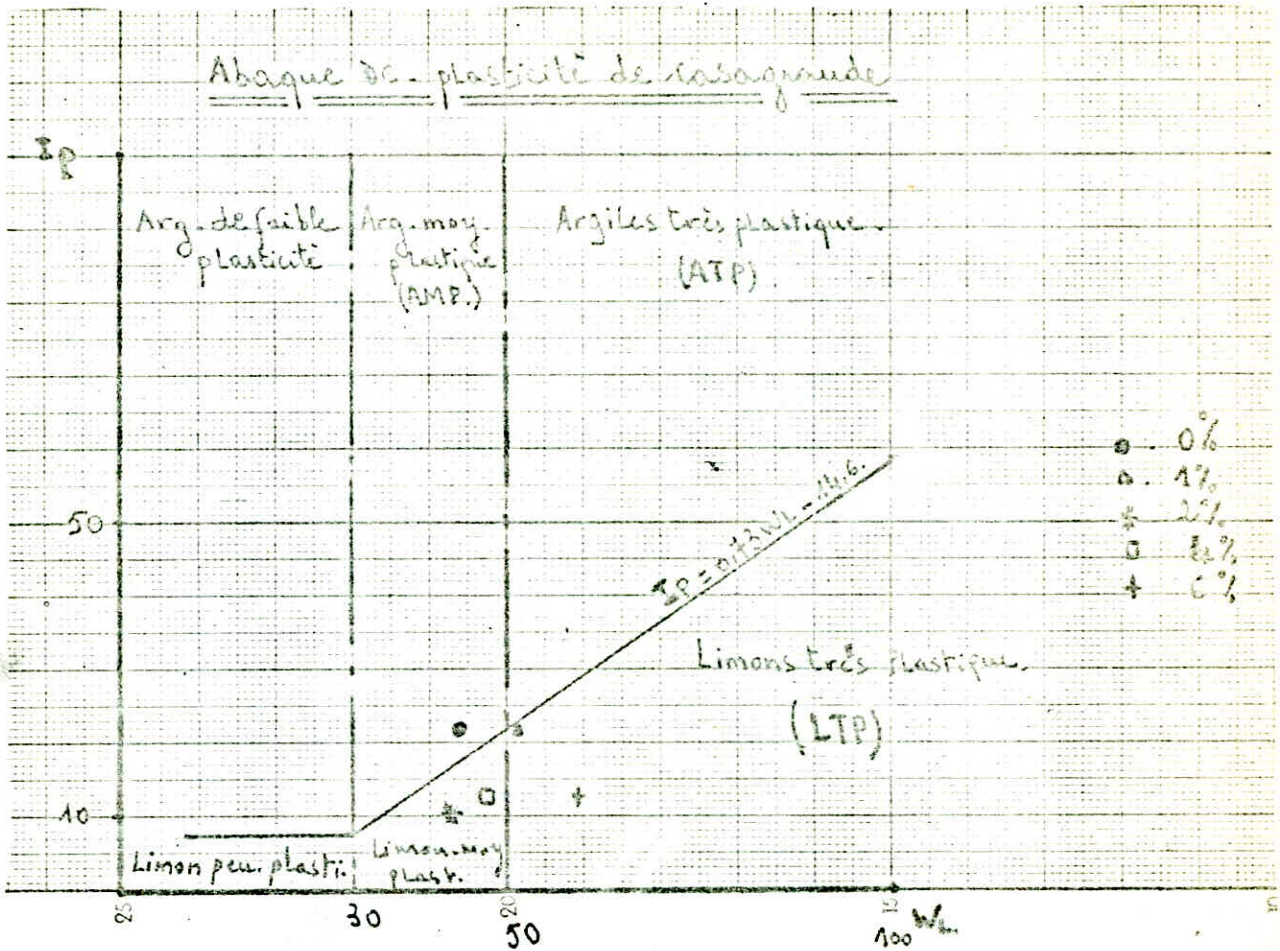 Abaque De plasticité de casagrande
Ip
Arg. de faible
plasticité
Arg. moy.
plastique
(AMP.)
Argiles très plastique.
(ATP)
0%
1%
2%
6%
50
IP = 0,73WL - 14.6.
Limons très plastique.
(LTP)
10
Limon peu. plasti.
Limon. moy
plast.
25
30
20
50
15
100
WL